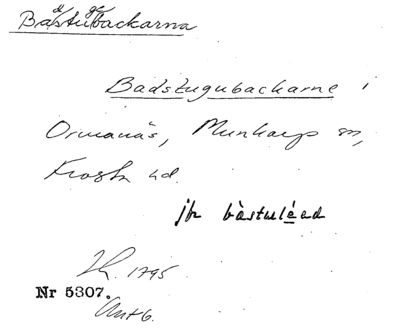 Bastubackarna
Badstugubackarne i
Ormanäs, Munkarp sn,
Frosta hd.
jfr bàstuléed
1795
Nr 5307.
Antb.